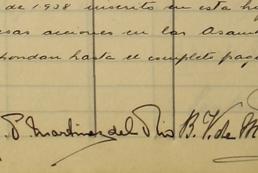 de 1938 inscrito en esta
esas acciones en las Asam
pondan hasta el completo pag
P. Martinez del Rio B. V. de M